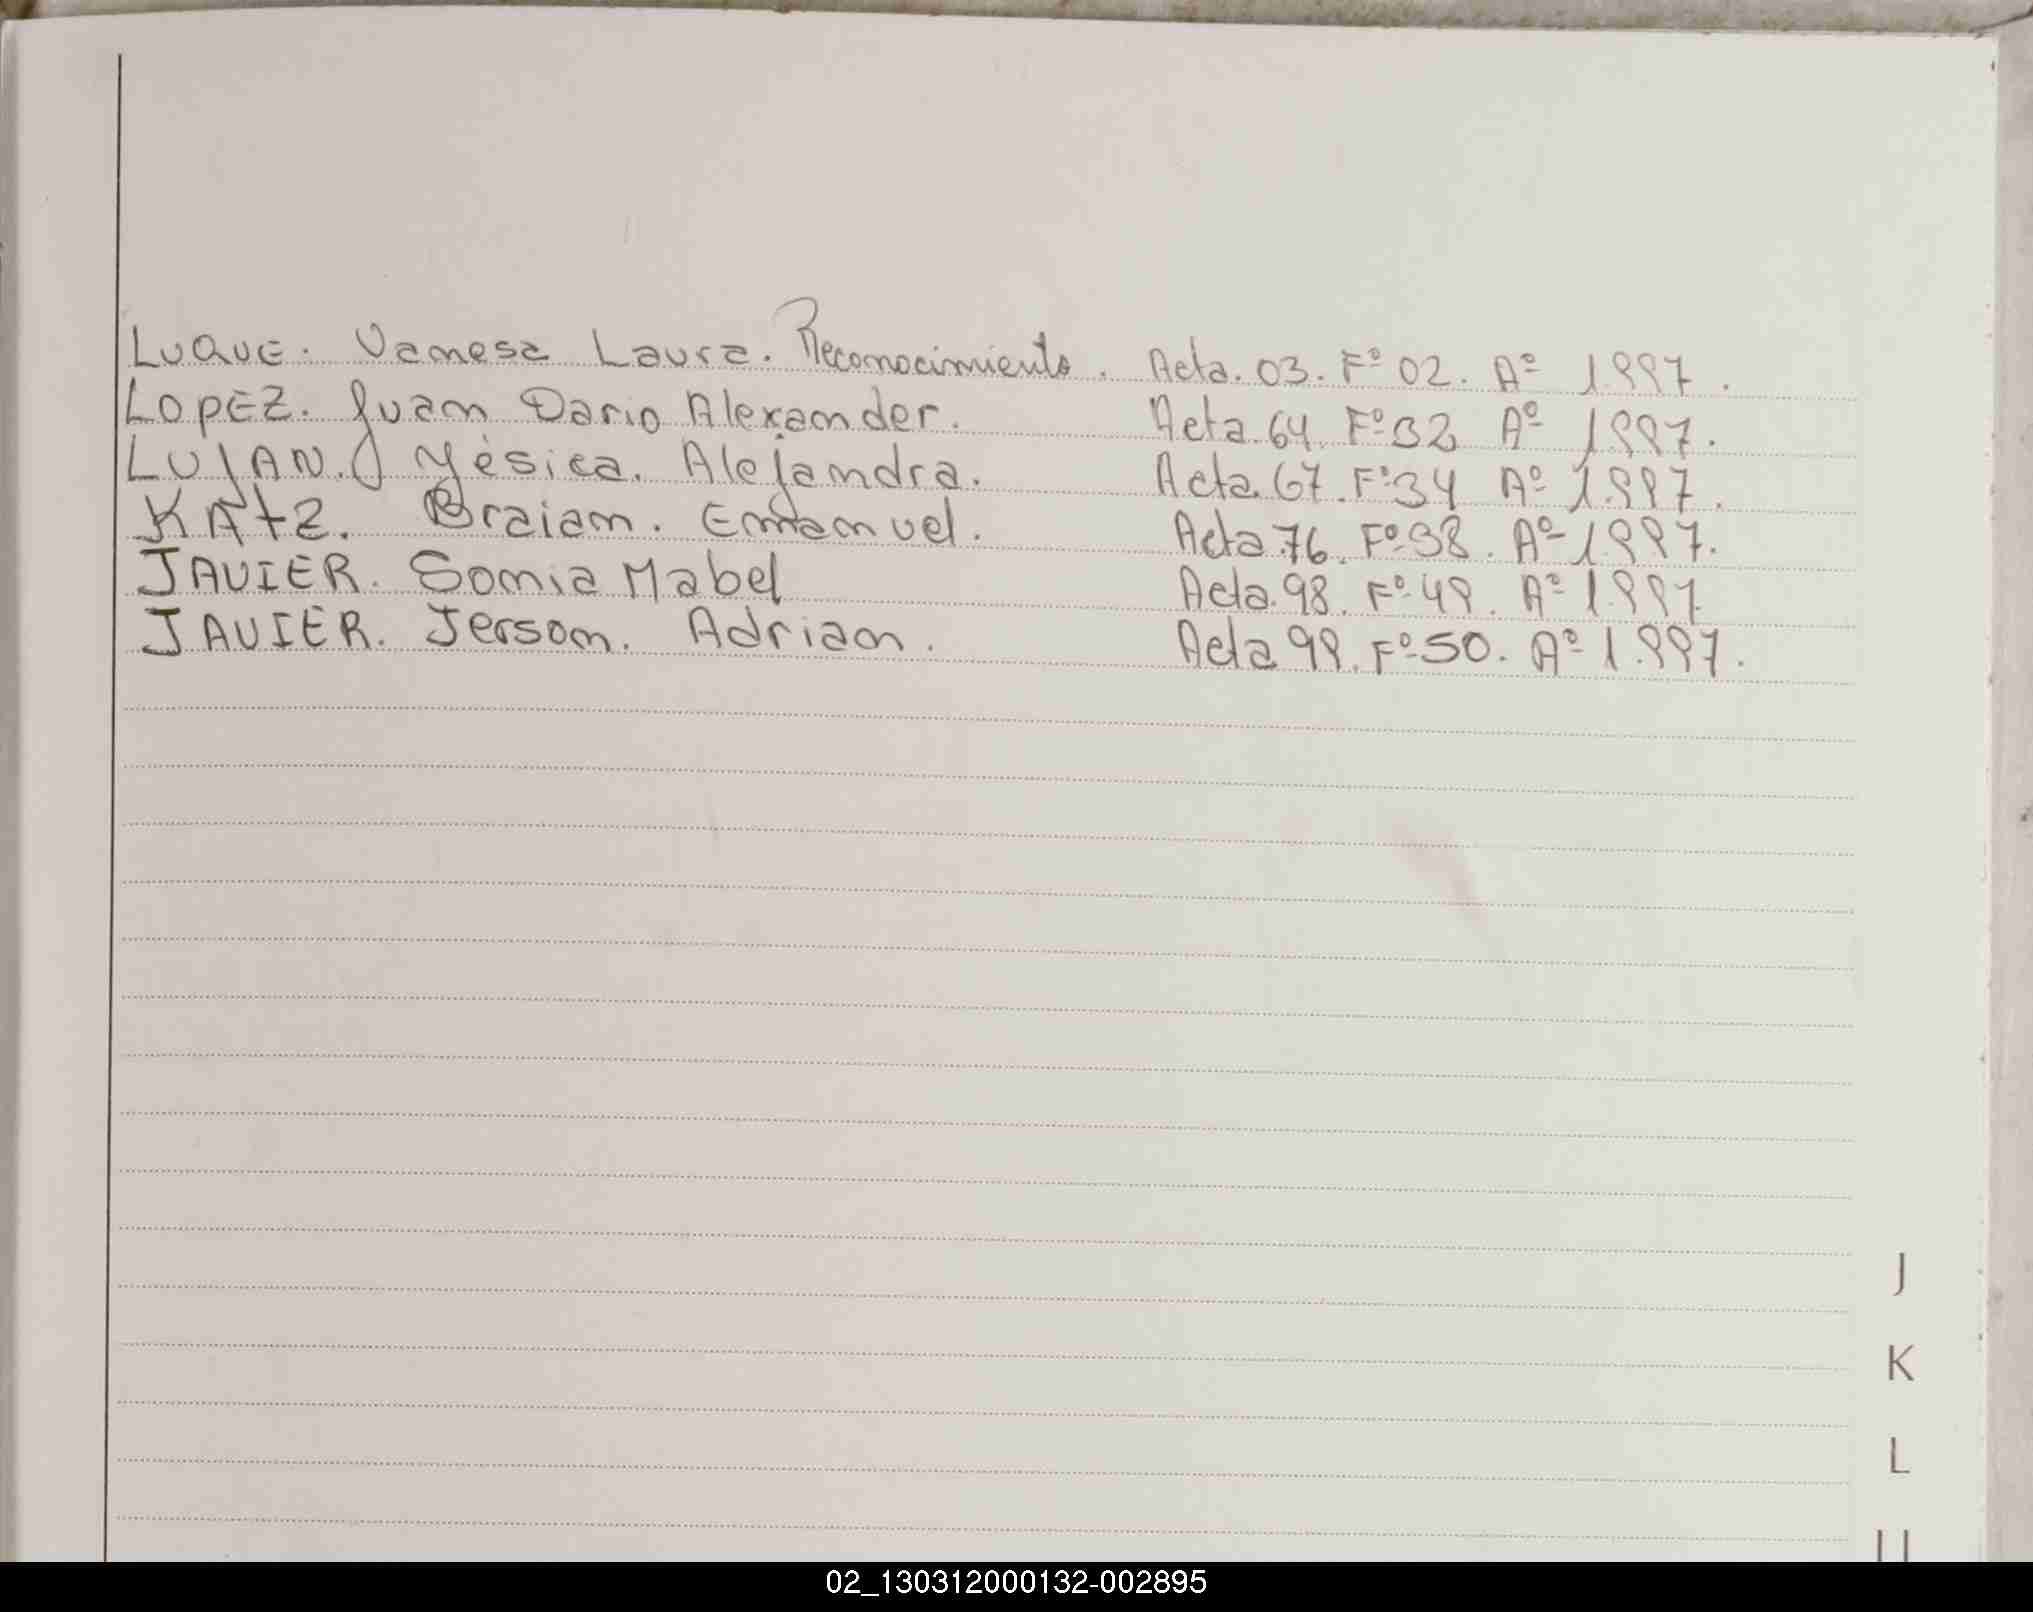 LUQUE. Vanesa Laura. Reconocimiento. Acta. 03. Fº 02. Aº 1.997.
LOPEZ. Juan Dario Alexander. Acta. 64. Fº 32 Aº 1.997.
LUJAN. Yésica. Alejandra. Acta. 67. Fº 34 Aº 1.997.
KATZ. Braian. Emanuel. Acta 76. Fº 38. Aº 1.997.
JAVIER. Sonia Mabel Acta. 98. Fº 49. Aº 1.997
JAVIER. Jerson. Adrian. Acta 99. Fº 50. Aº 1.997.
J
K
L
02_130312000132-002895